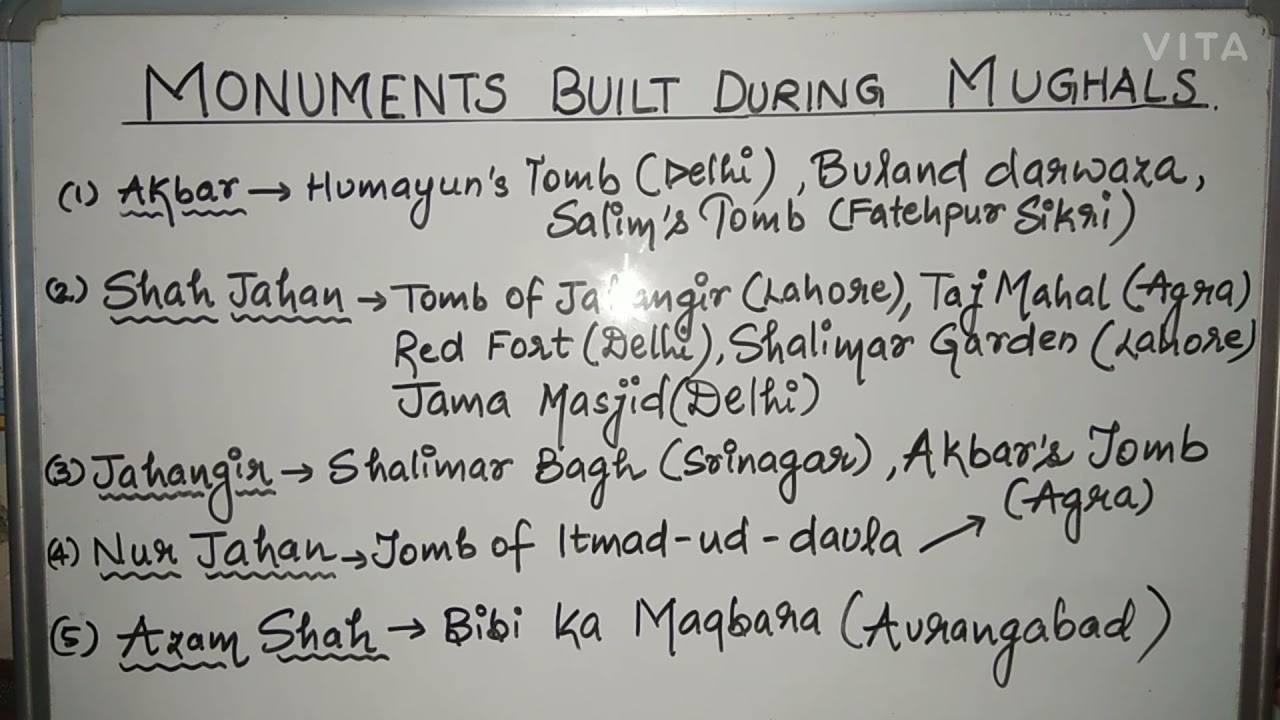 VITA
MONUMENTS BUILT DURING MUGHALS.
(1) Akbar → Humayun's Tomb (Delhi), Buland darwaza,
Salim's Tomb (Fatehpur Sikri)
(2) Shah Jahan → Tomb of Jahangir (Lahore), Taj Mahal (Agra)
Red Fort (Delhi), Shalimar Garden (Lahore)
Jama Masjid (Delhi)
(3) Jahangir → Shalimar Bagh (Srinagar), Akbar's Tomb
(Agra)
(4) Nur Jahan → Tomb of Itmad-ud-daula ↗
(5) Azam Shah → Bibi Ka Maqbara (Aurangabad)